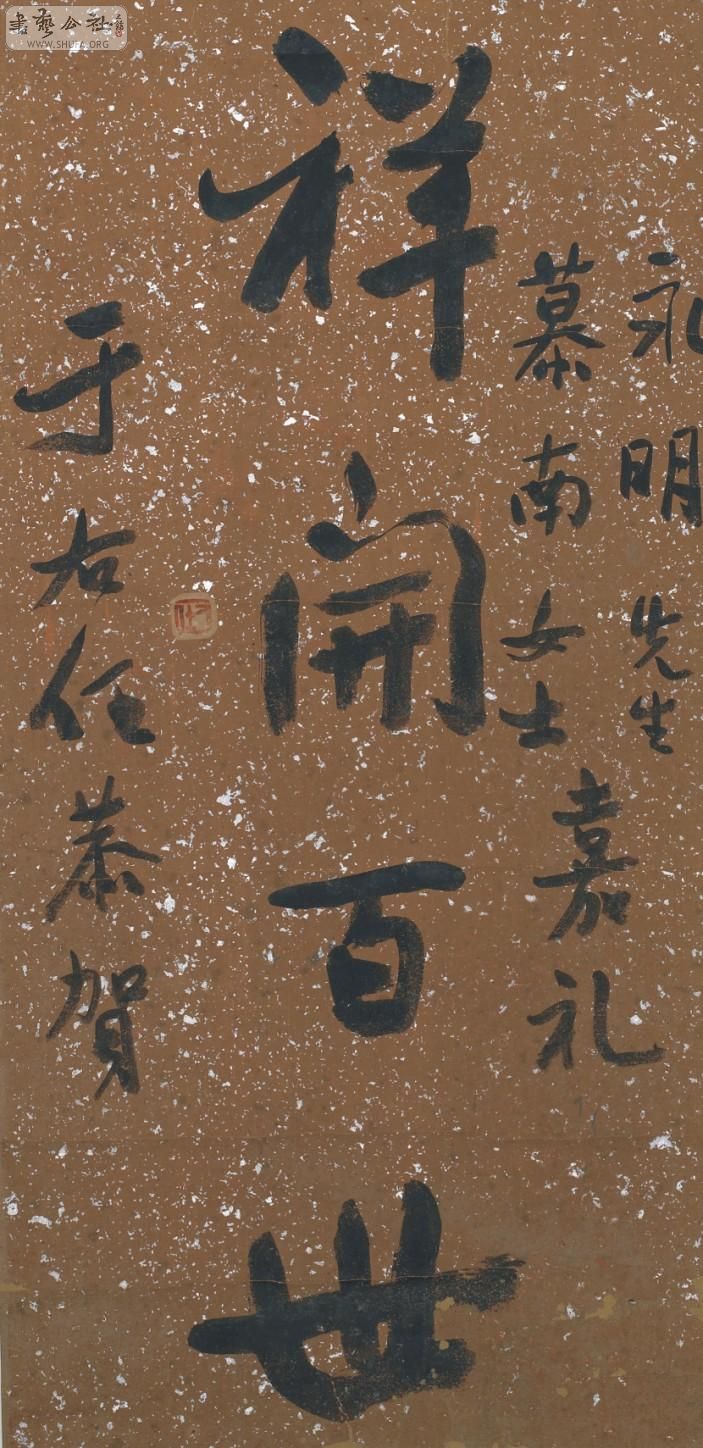 永明先生
慕南女士
嘉礼
祥開百世
于右任恭賀
書藝公社
WWW.SHUFA.ORG